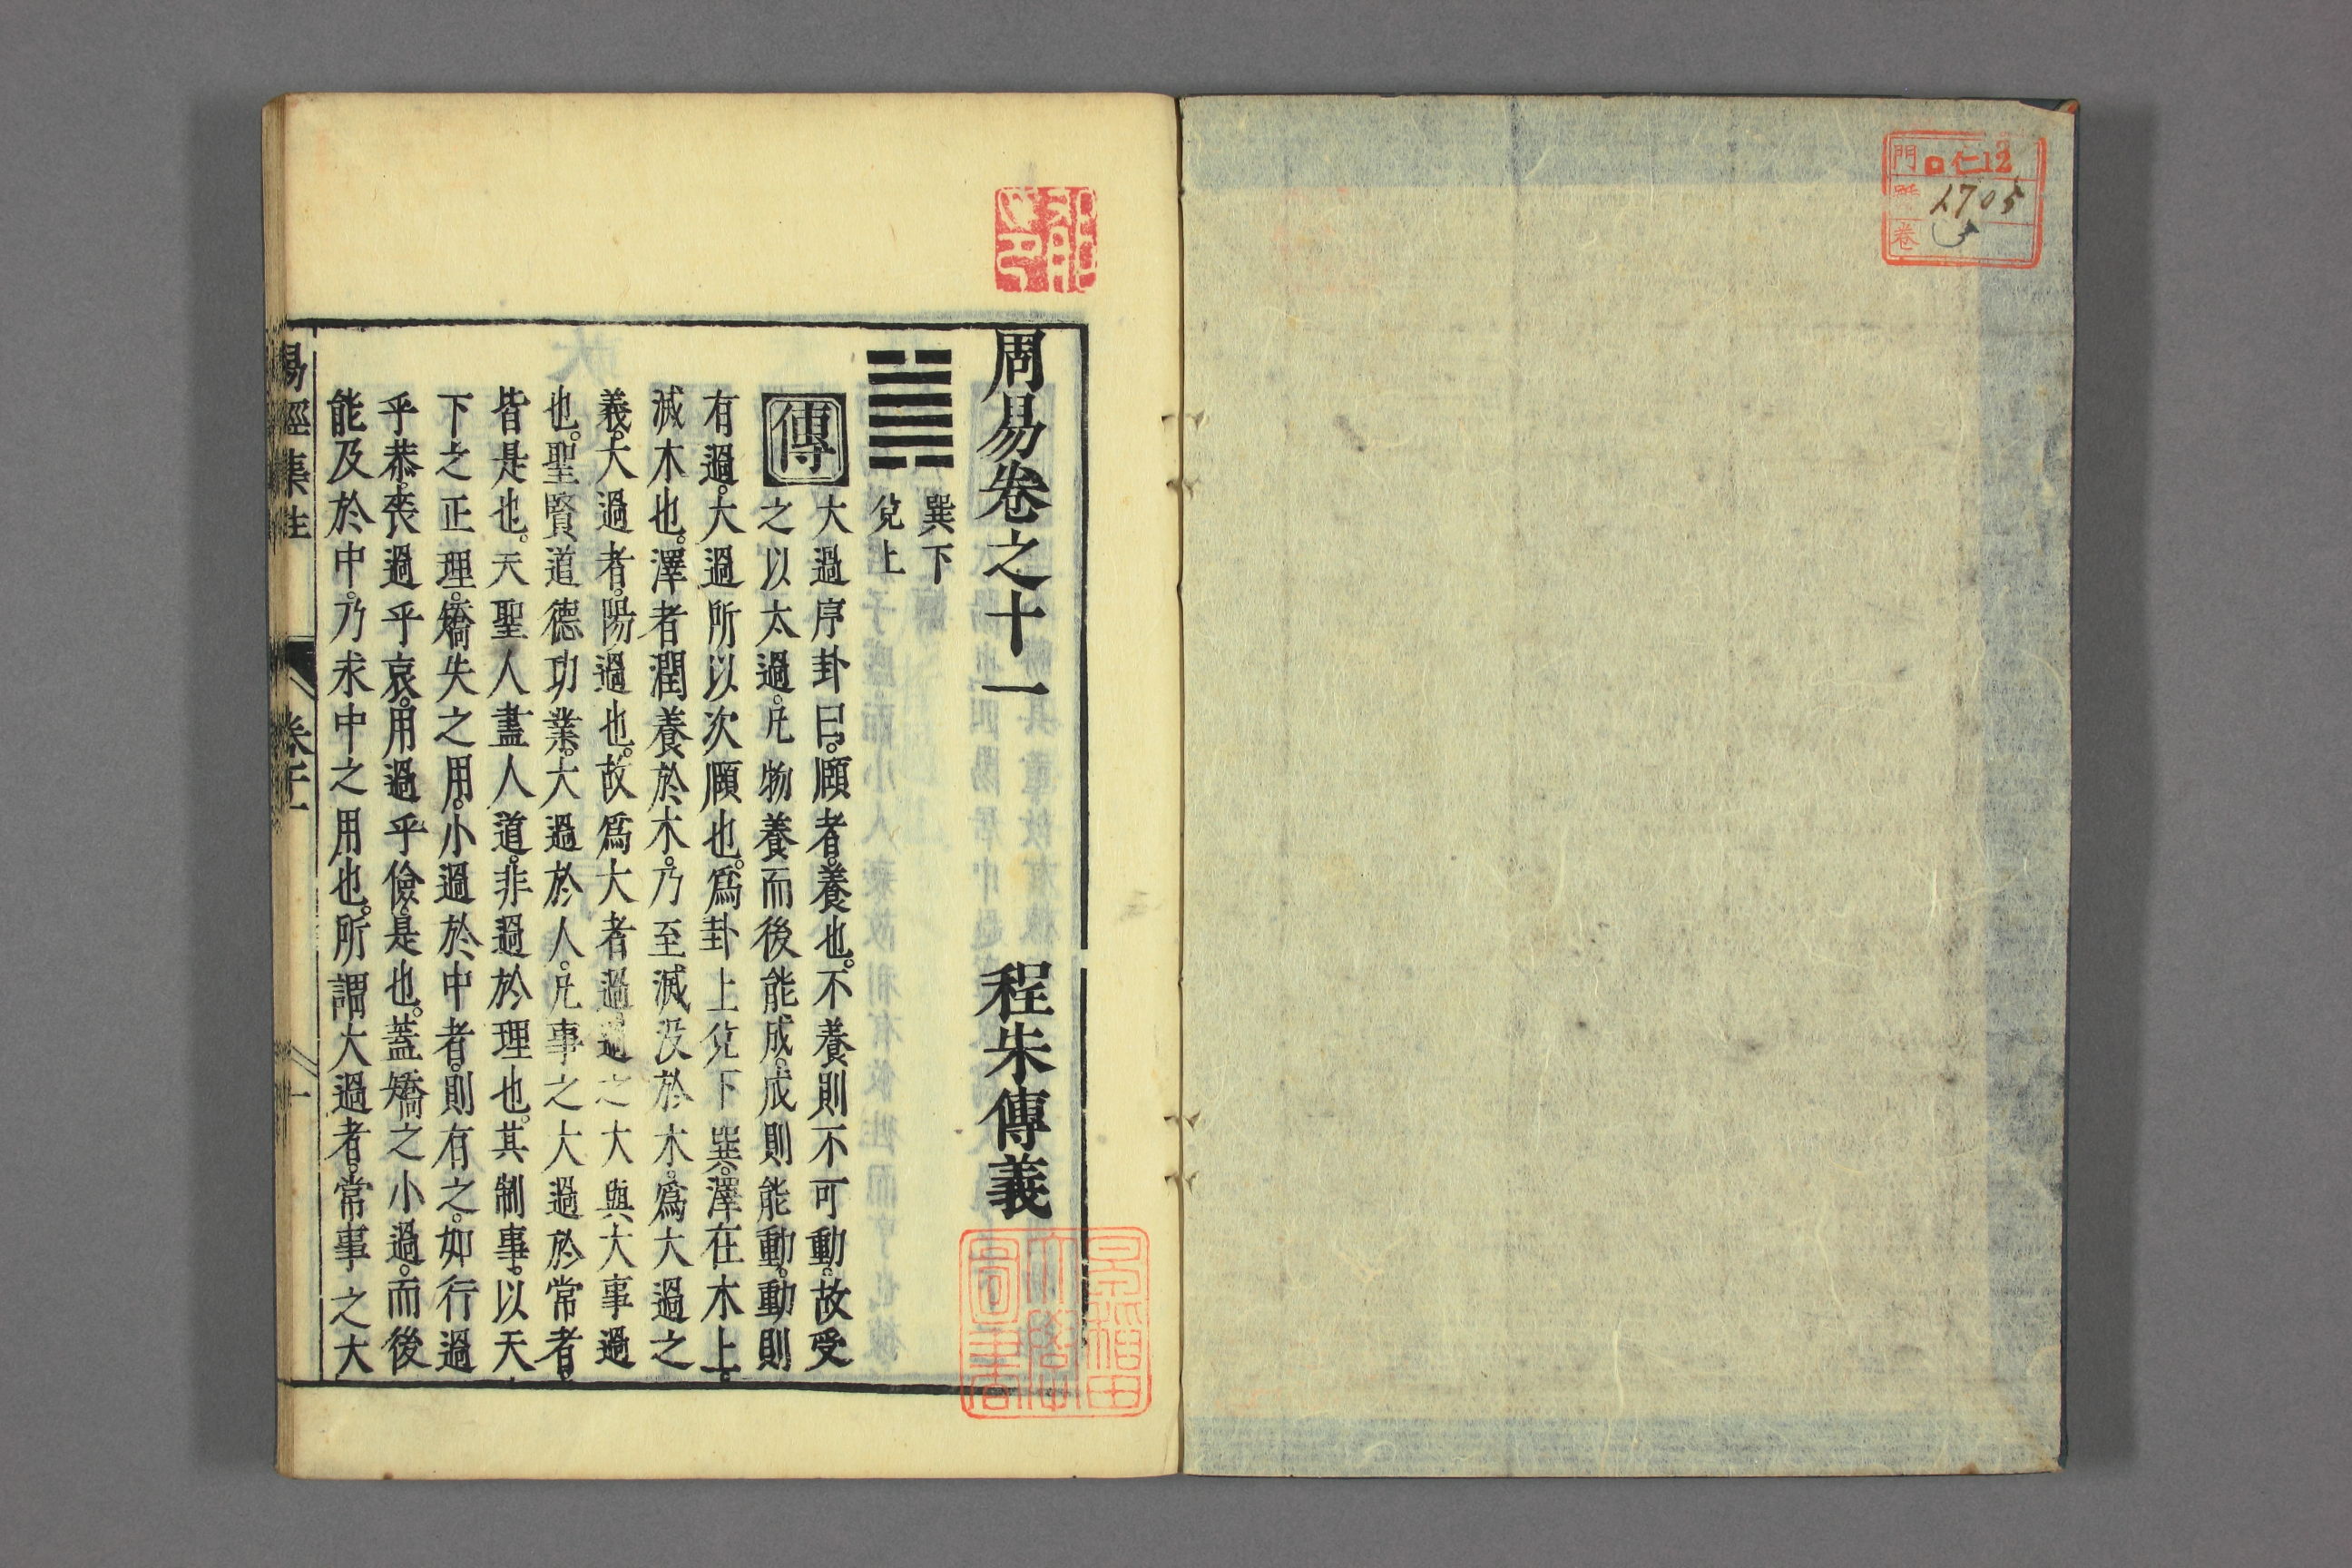 門 ロ仁12
號 1705
卷 5
周易卷之十一 程朱傳義
巽下
兌上
傳 大過序卦曰。頤者。養也。不養則不可動。故受
之以大過。凡物養而後能成。成則能動。動則
有過。大過所以次頤也。爲卦上兌下巽。澤在木上。
滅木也。澤者潤養於木。乃至滅没於木。爲大過之
義。大過者。陽過也。故爲大者過。過之大與大事過
也。聖賢道德功業。大過於人。凡事之大過於常者。
皆是也。夭聖人盡人道。非過於理也。其制事。以天
下之正理。矯失之用。小過於中者。則有之。如行過
乎恭。喪過乎哀。用過乎儉。是也。蓋矯之小過。而後
能及於中。乃求中之用也。所謂大過者。常事之大
易經集註 卷十一 一
早稻田大學圖書